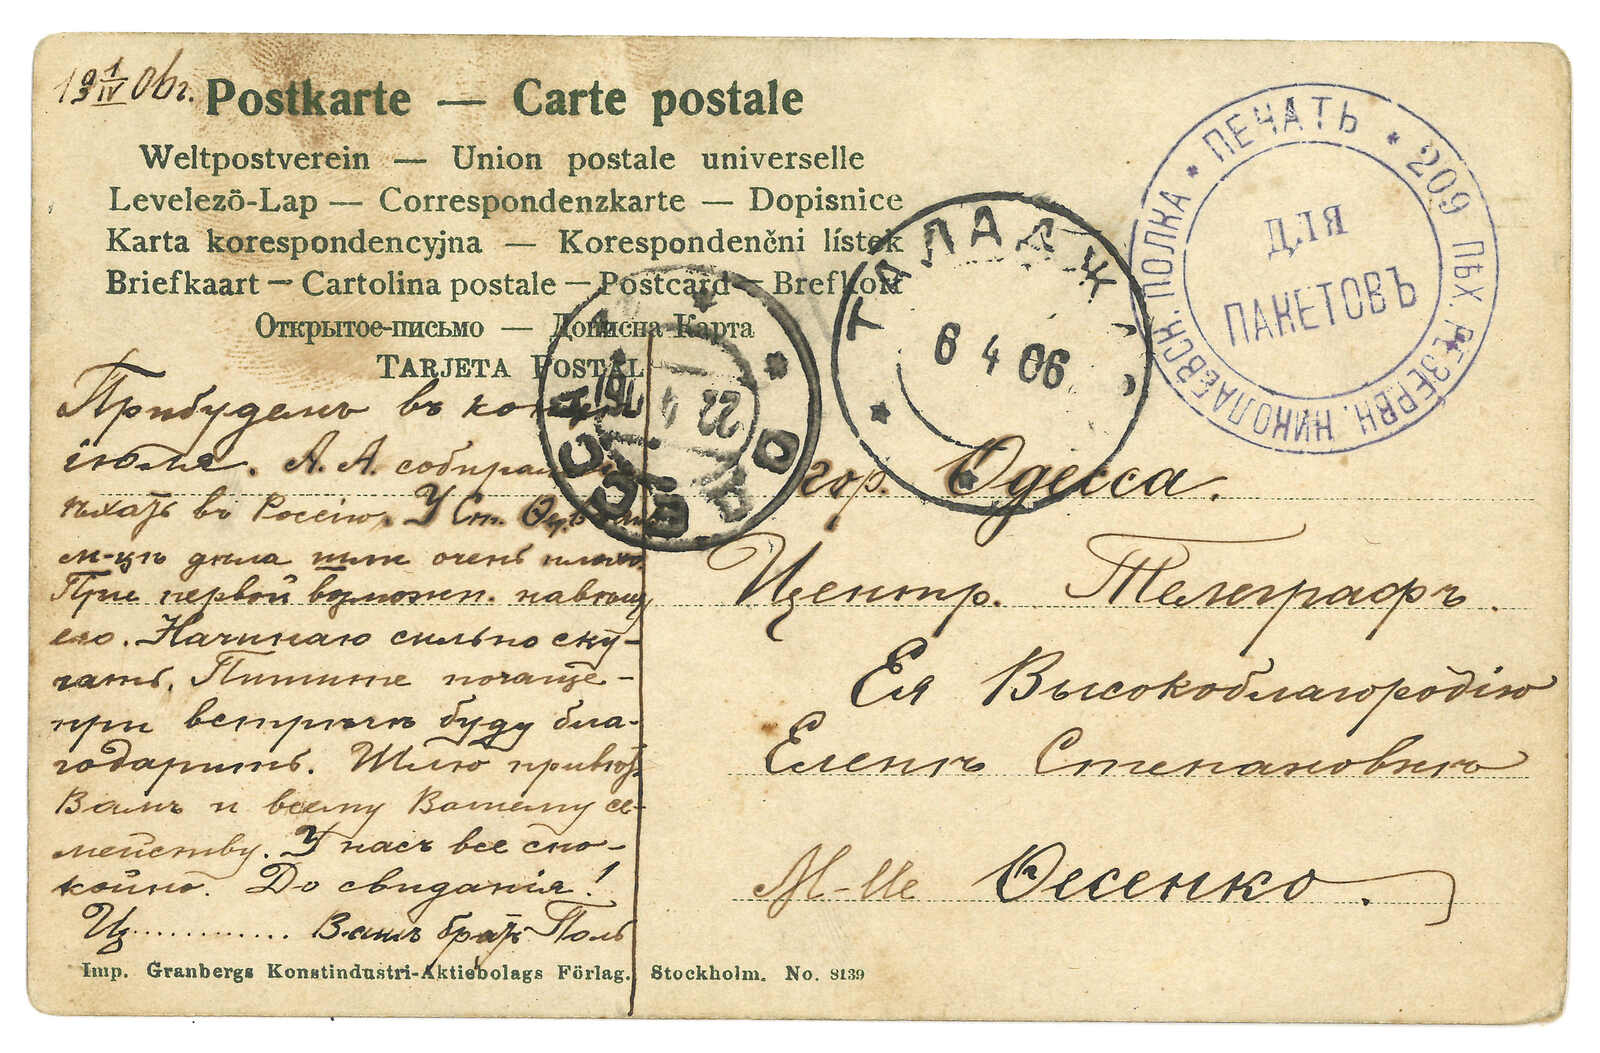 19 1/IV 06г.
Postkarte — Carte postale
Weltpostverein — Union postale universelle
Levelezö-Lap — Correspondenzkarte — Dopisnice
Karta korespondencyjna — Korespondenčni lístek
Briefkaart — Cartolina postale — Postcard — Brefkort
Открытое-письмо — Дописна Карта
TARJETA POSTAL
* ПЕЧАТЬ * 209 ПѢХ. РЕЗЕРВН. НИКОЛАЕВСК. ПОЛКА
ДЛЯ
ПАКЕТОВЪ
ТАЛАДЖ
6 4 06
ОДЕССА
22 4
Прибудемъ въ концѣ
іюля. А. А. собирается
ѣхать въ Россію. У Ст.
м-цѣ дѣла шли очень плохо.
При первой возможн.
его. Начинаю сильно ску-
чать. Пишите почаще-
при встрѣчѣ буду бла-
годарить. Шлю привѣтъ
Вамъ и всему Вашему се-
мейству. У насъ все спо-
койно. До свиданія!
Ц............ Вашъ братъ Поль
гор. Одесса.
Центр. Телеграфъ.
Ея Высокоблагородію
Еленѣ Степановнѣ
М-lle Фесенко.
Imp. Granbergs Konstindustri-Aktiebolags Förlag. Stockholm. No. 8139